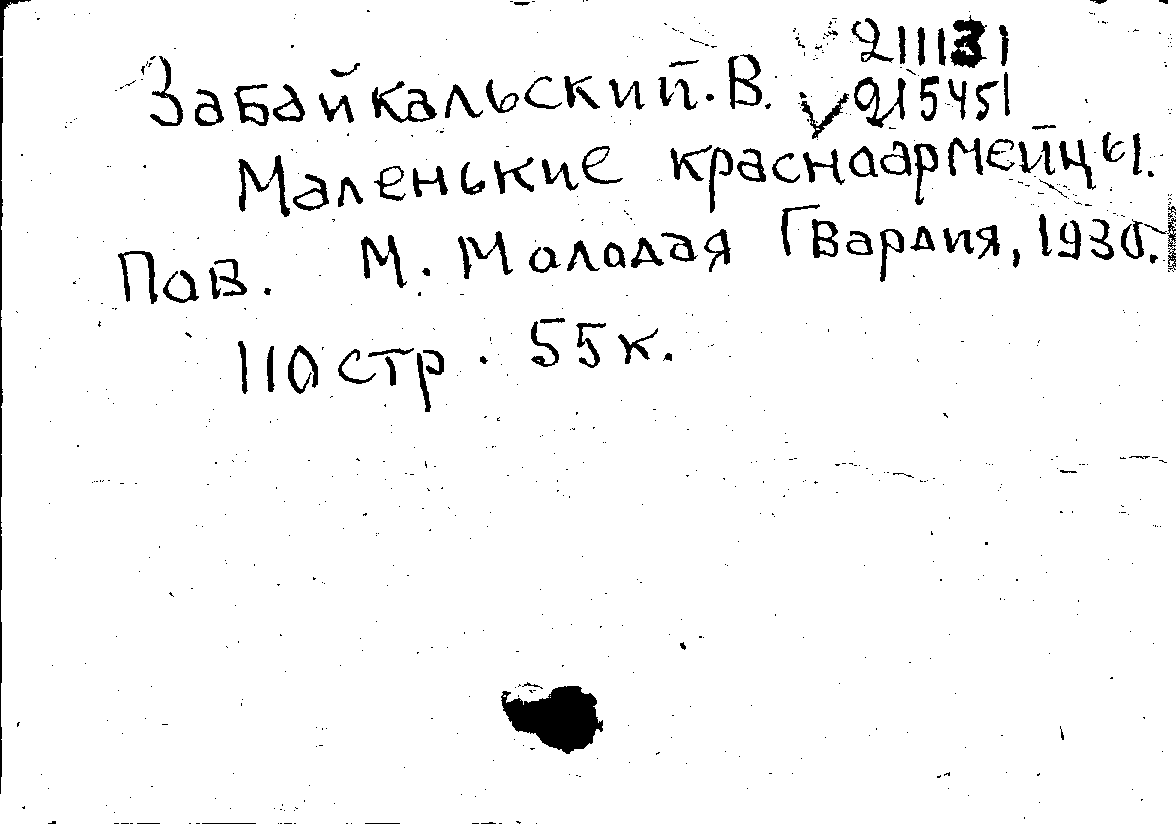 Забайкальский. В. V 211131
V 215451
Маленькие красноармейцы.
Пов. М. Молодая Гвардия, 1930.
110 стр. 55 к.